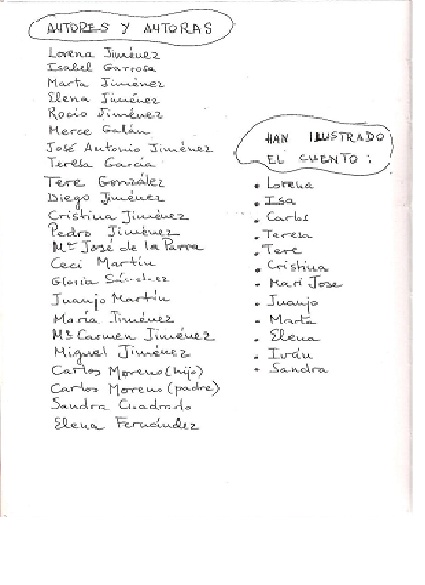 AUTORES Y AUTORAS
Lorena Jiménez
Isabel Garrosa
Marta Jiménez
Elena Jiménez
Rocío Jiménez
Merce Galán
José Antonio Jiménez
Teresa García
Tere González
Diego Jiménez
Cristina Jiménez
Pedro Jiménez
Mª José de la Parra
Ceci Martín
Gloria Sánchez
Juanjo Martín
María Jiménez
Mª Carmen Jiménez
Miguel Jiménez
Carlos Moreno (hijo)
Carlos Moreno (padre)
Sandra Cuadrado
Elena Fernández
HAN ILUSTRADO
EL CUENTO:
• Lorena
• Isa
• Carlos
• Teresa
• Tere
• Cristina
• Mari Jose
• Juanjo
• Marta
• Elena
• Iván
• Sandra